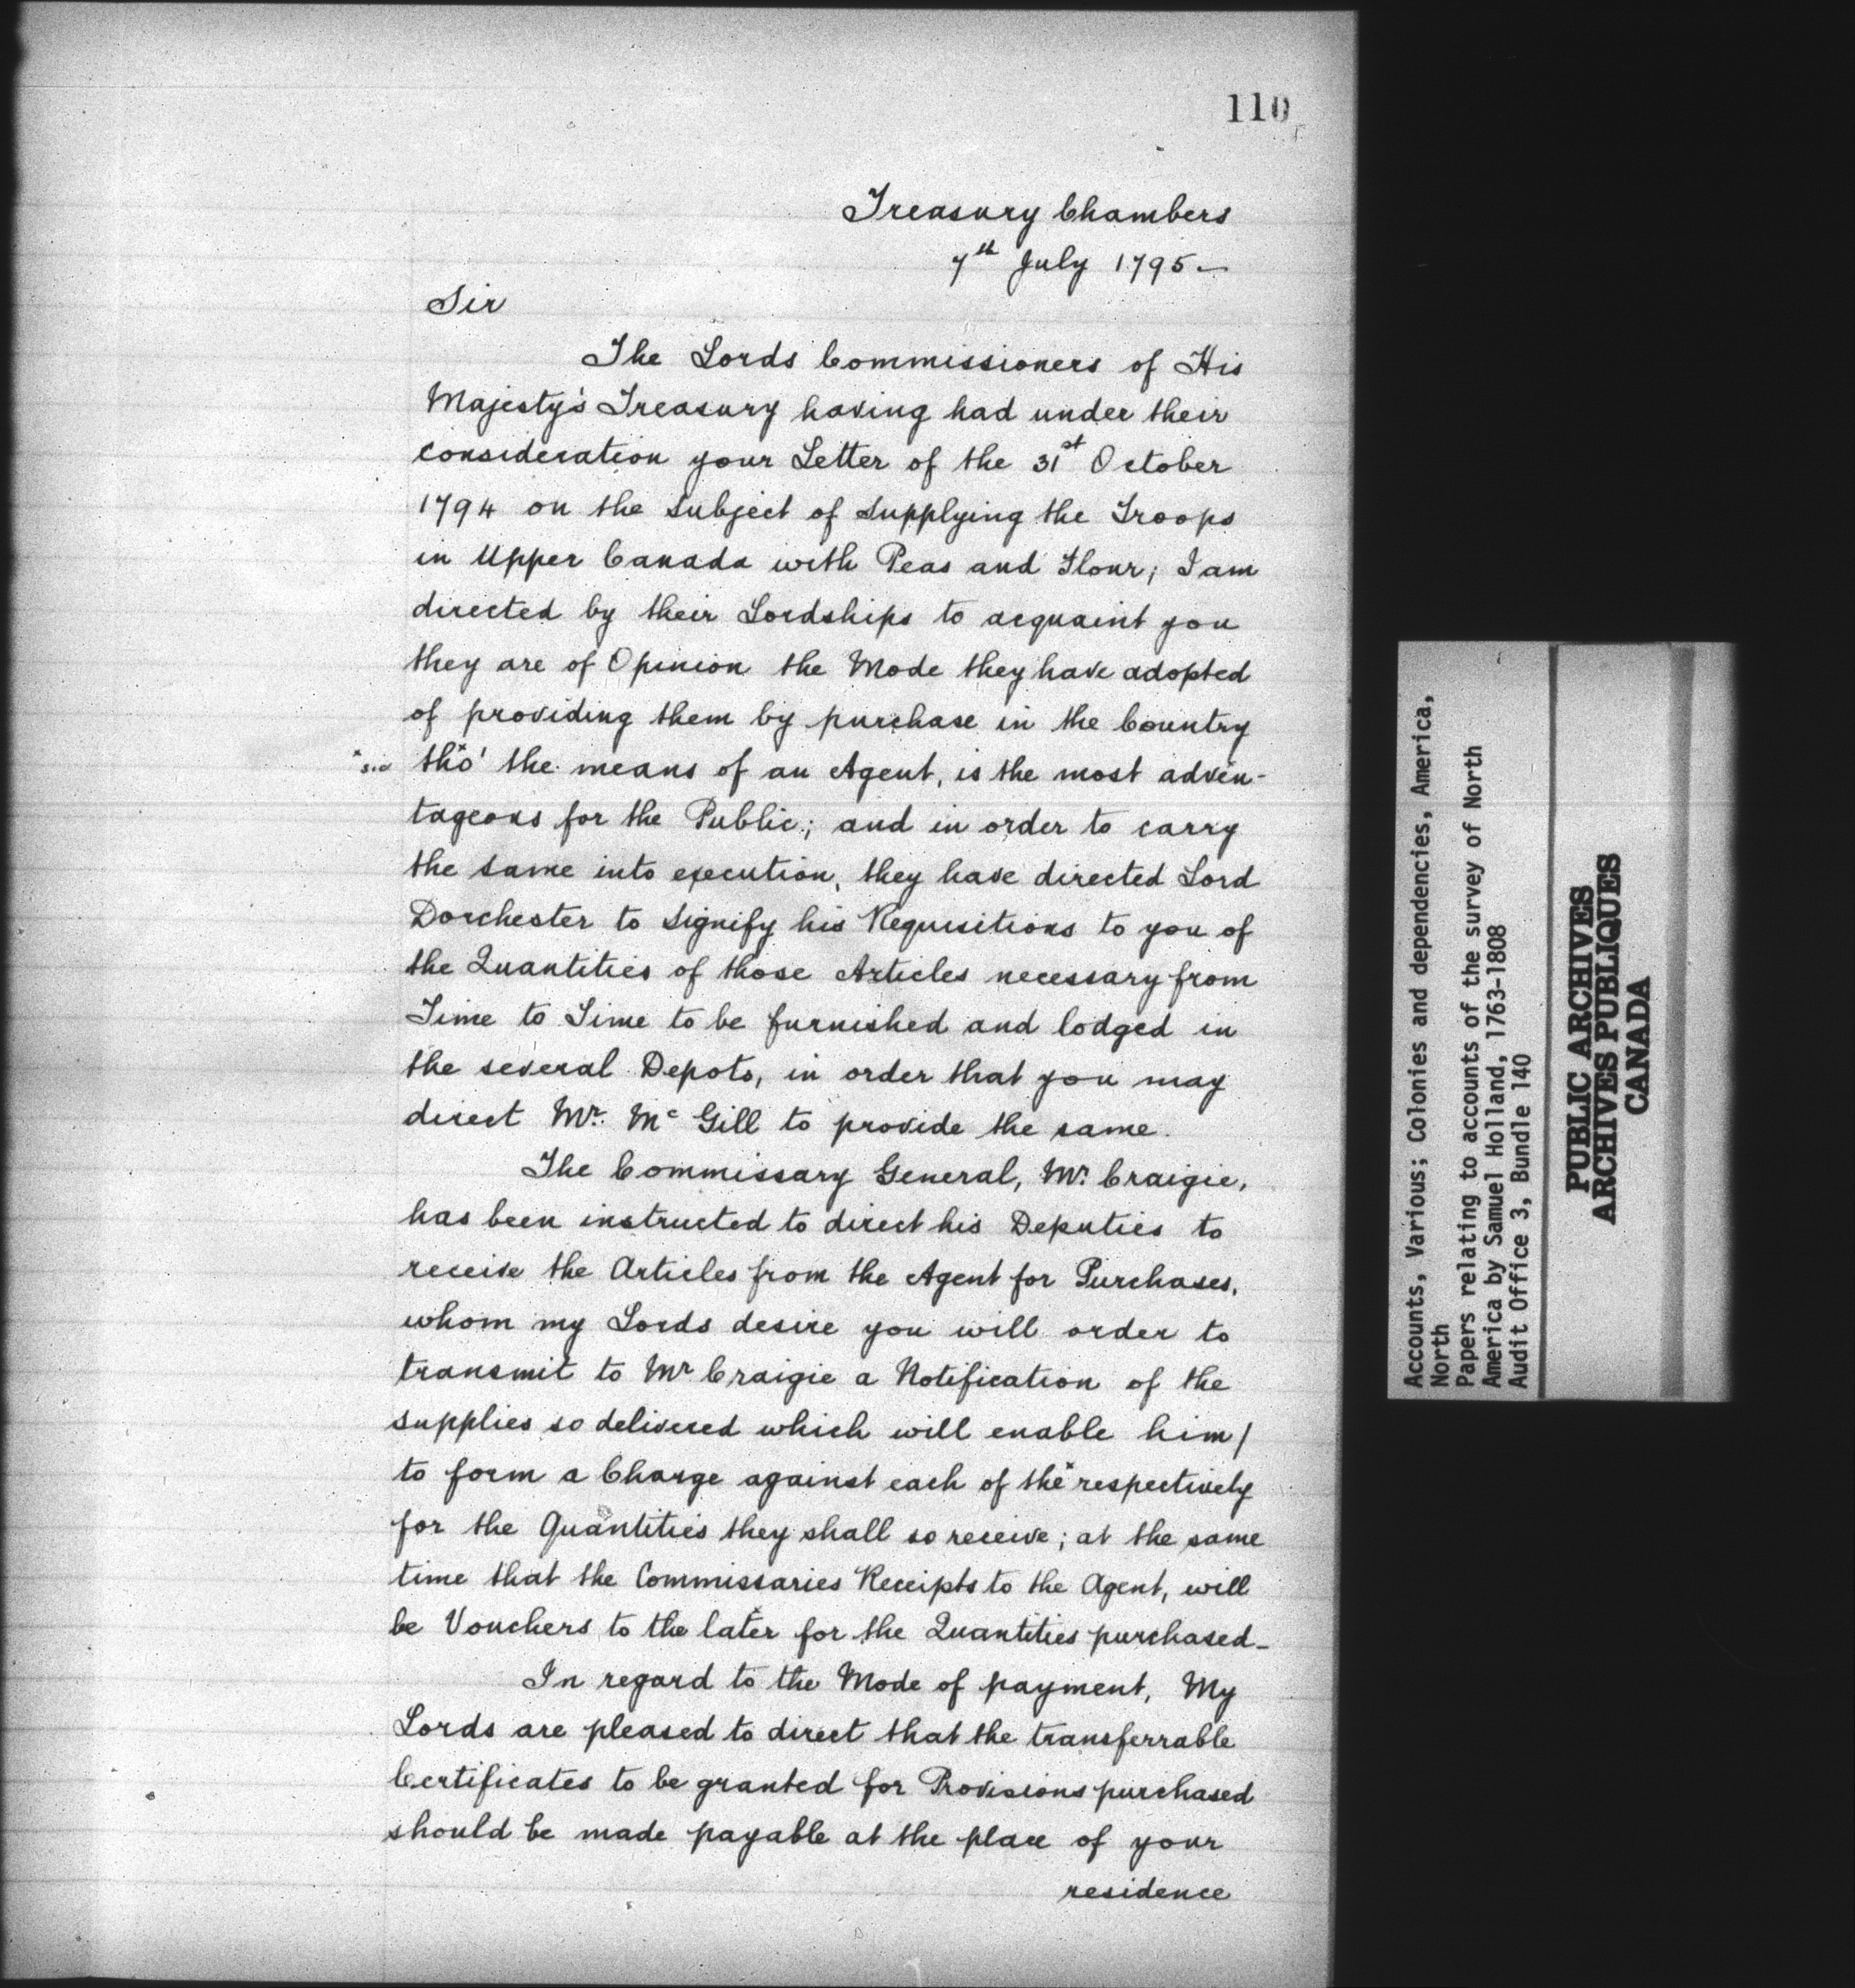 110
Treasury Chambers
7th July 1795-
Sir
The Lords Commissioners of His
Majesty's Treasury having had under their
consideration your Letter of the 31st October
1794 on the subject of supplying the Troops
in Upper Canada with Peas and Flour; I am
directed by their Lordships to acquaint you
they are of Opinion the Mode they have adopted
of providing them by purchase in the Country
*sic tho*' the means of an Agent, is the most adven-
tageous for the Public; and in order to carry
the same into execution, they have directed Lord
Dorchester to signify his Requisitions to you of
the Quantities of those Articles necessary from
Time to Time to be furnished and lodged in
the several Depots, in order that you may
direct Mr. Mc Gill to provide the same.
The Commissary General, Mr. Craigie,
has been instructed to direct his Deputies to
receive the Articles from the Agent for Purchases,
whom my Lords desire you will order to
transmit to Mr Craigie a Notification of the
supplies so delivered which will enable him/
to form a Charge against each of the* respectively
for the Quantities they shall so receive; at the same
time that the Commissaries Receipts to the Agent, will
be Vouchers to the later for the Quantities purchased-
In regard to the Mode of payment, My
Lords are pleased to direct that the transferrable
Certificates to be granted for Provisions purchased
should be made payable at the place of your
residence
Accounts, Various; Colonies and dependencies, America,
North
Papers relating to accounts of the survey of North
America by Samuel Holland, 1763-1808
Audit Office 3, Bundle 140
PUBLIC ARCHIVES
ARCHIVES PUBLIQUES
CANADA